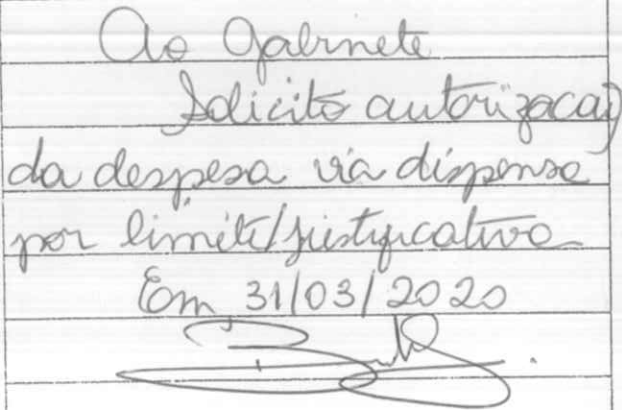 Ao Gabinete
Solicito autorização
da despesa via dispensa
por limite/justificativa
Em 31/03/2020